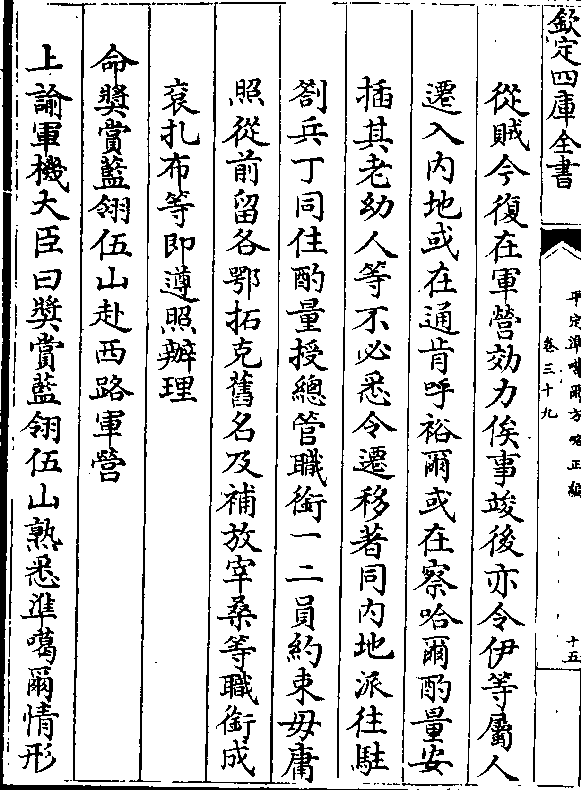 欽定四庫全書
平定準噶爾方略正編
卷三十九
十五
從賊今復在軍營効力俟事竣後亦令伊等屬人
遷入內地或在通肯呼裕爾或在察哈爾酌量安
插其老幼人等不必悉令遷移著同內地派往駐
劄兵丁同住酌量授總管職銜一二員約束毋庸
照從前留各鄂拓克舊名及補放宰桑等職銜成
袞扎布等即遵照辦理
命奬賞藍翎伍山赴西路軍營
上諭軍機大臣曰奬賞藍翎伍山熟悉準噶爾情形